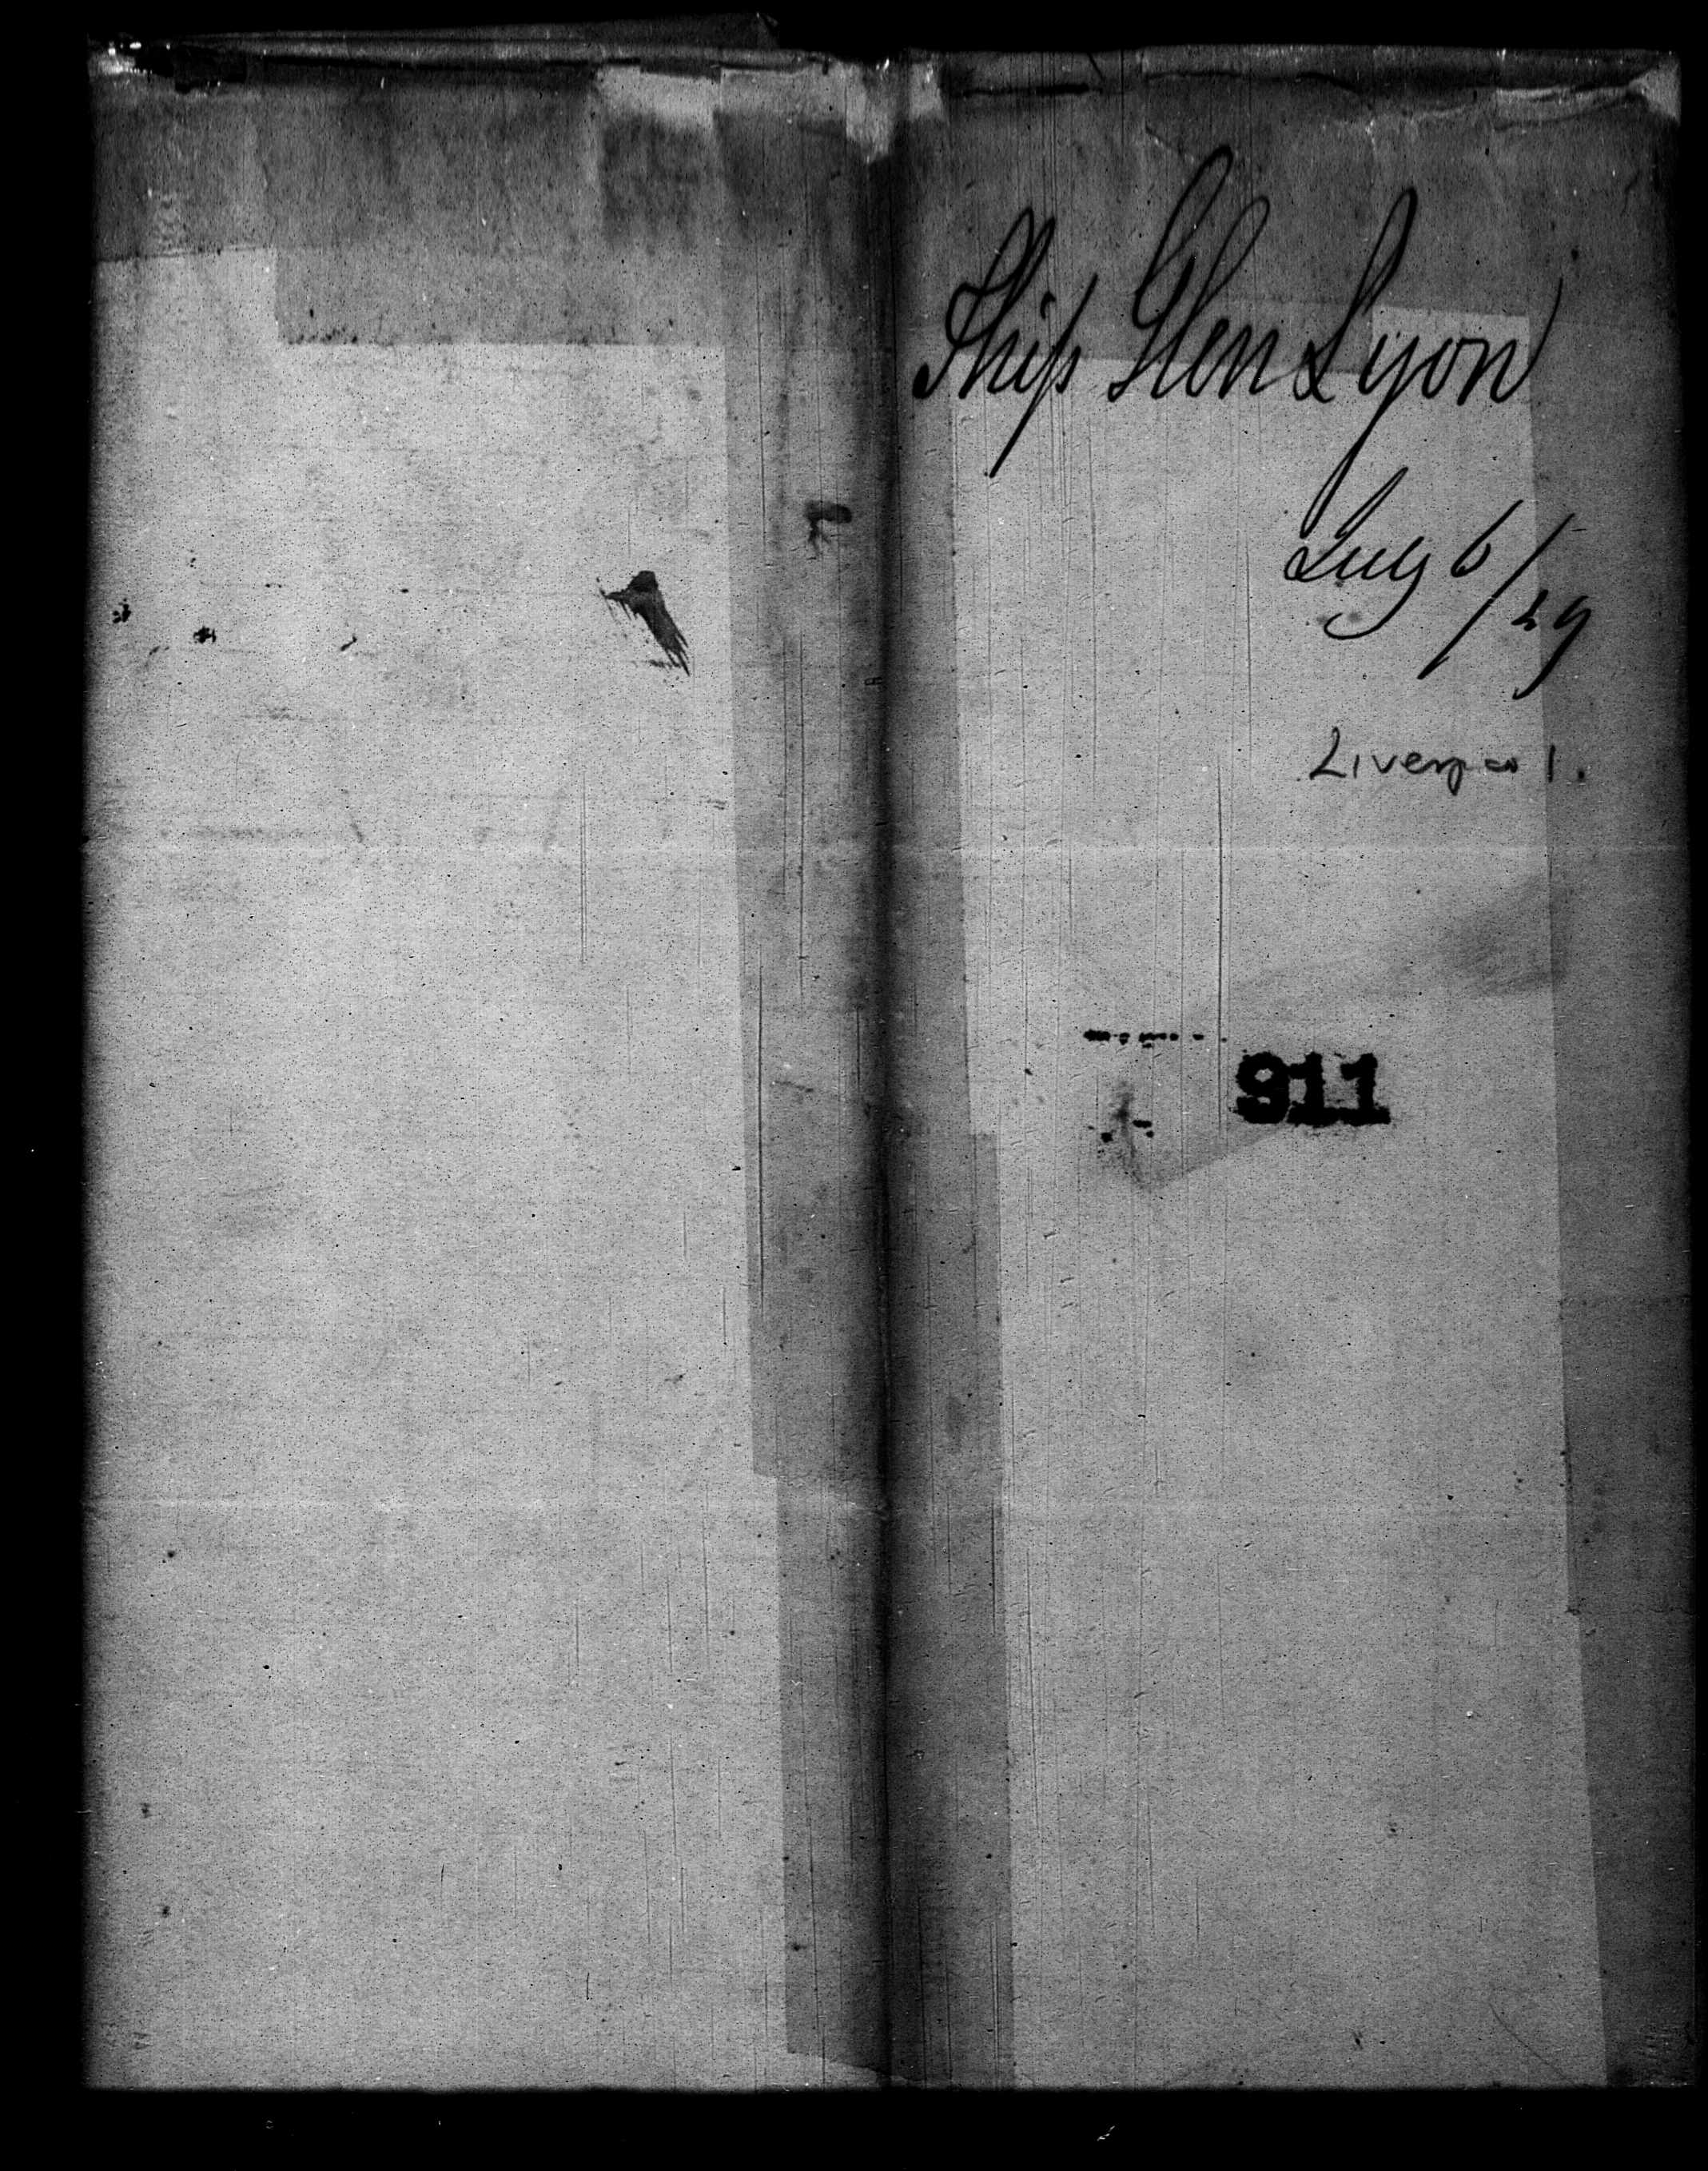 Ship Glen Lyon
July 6/29
Liverpool.
911